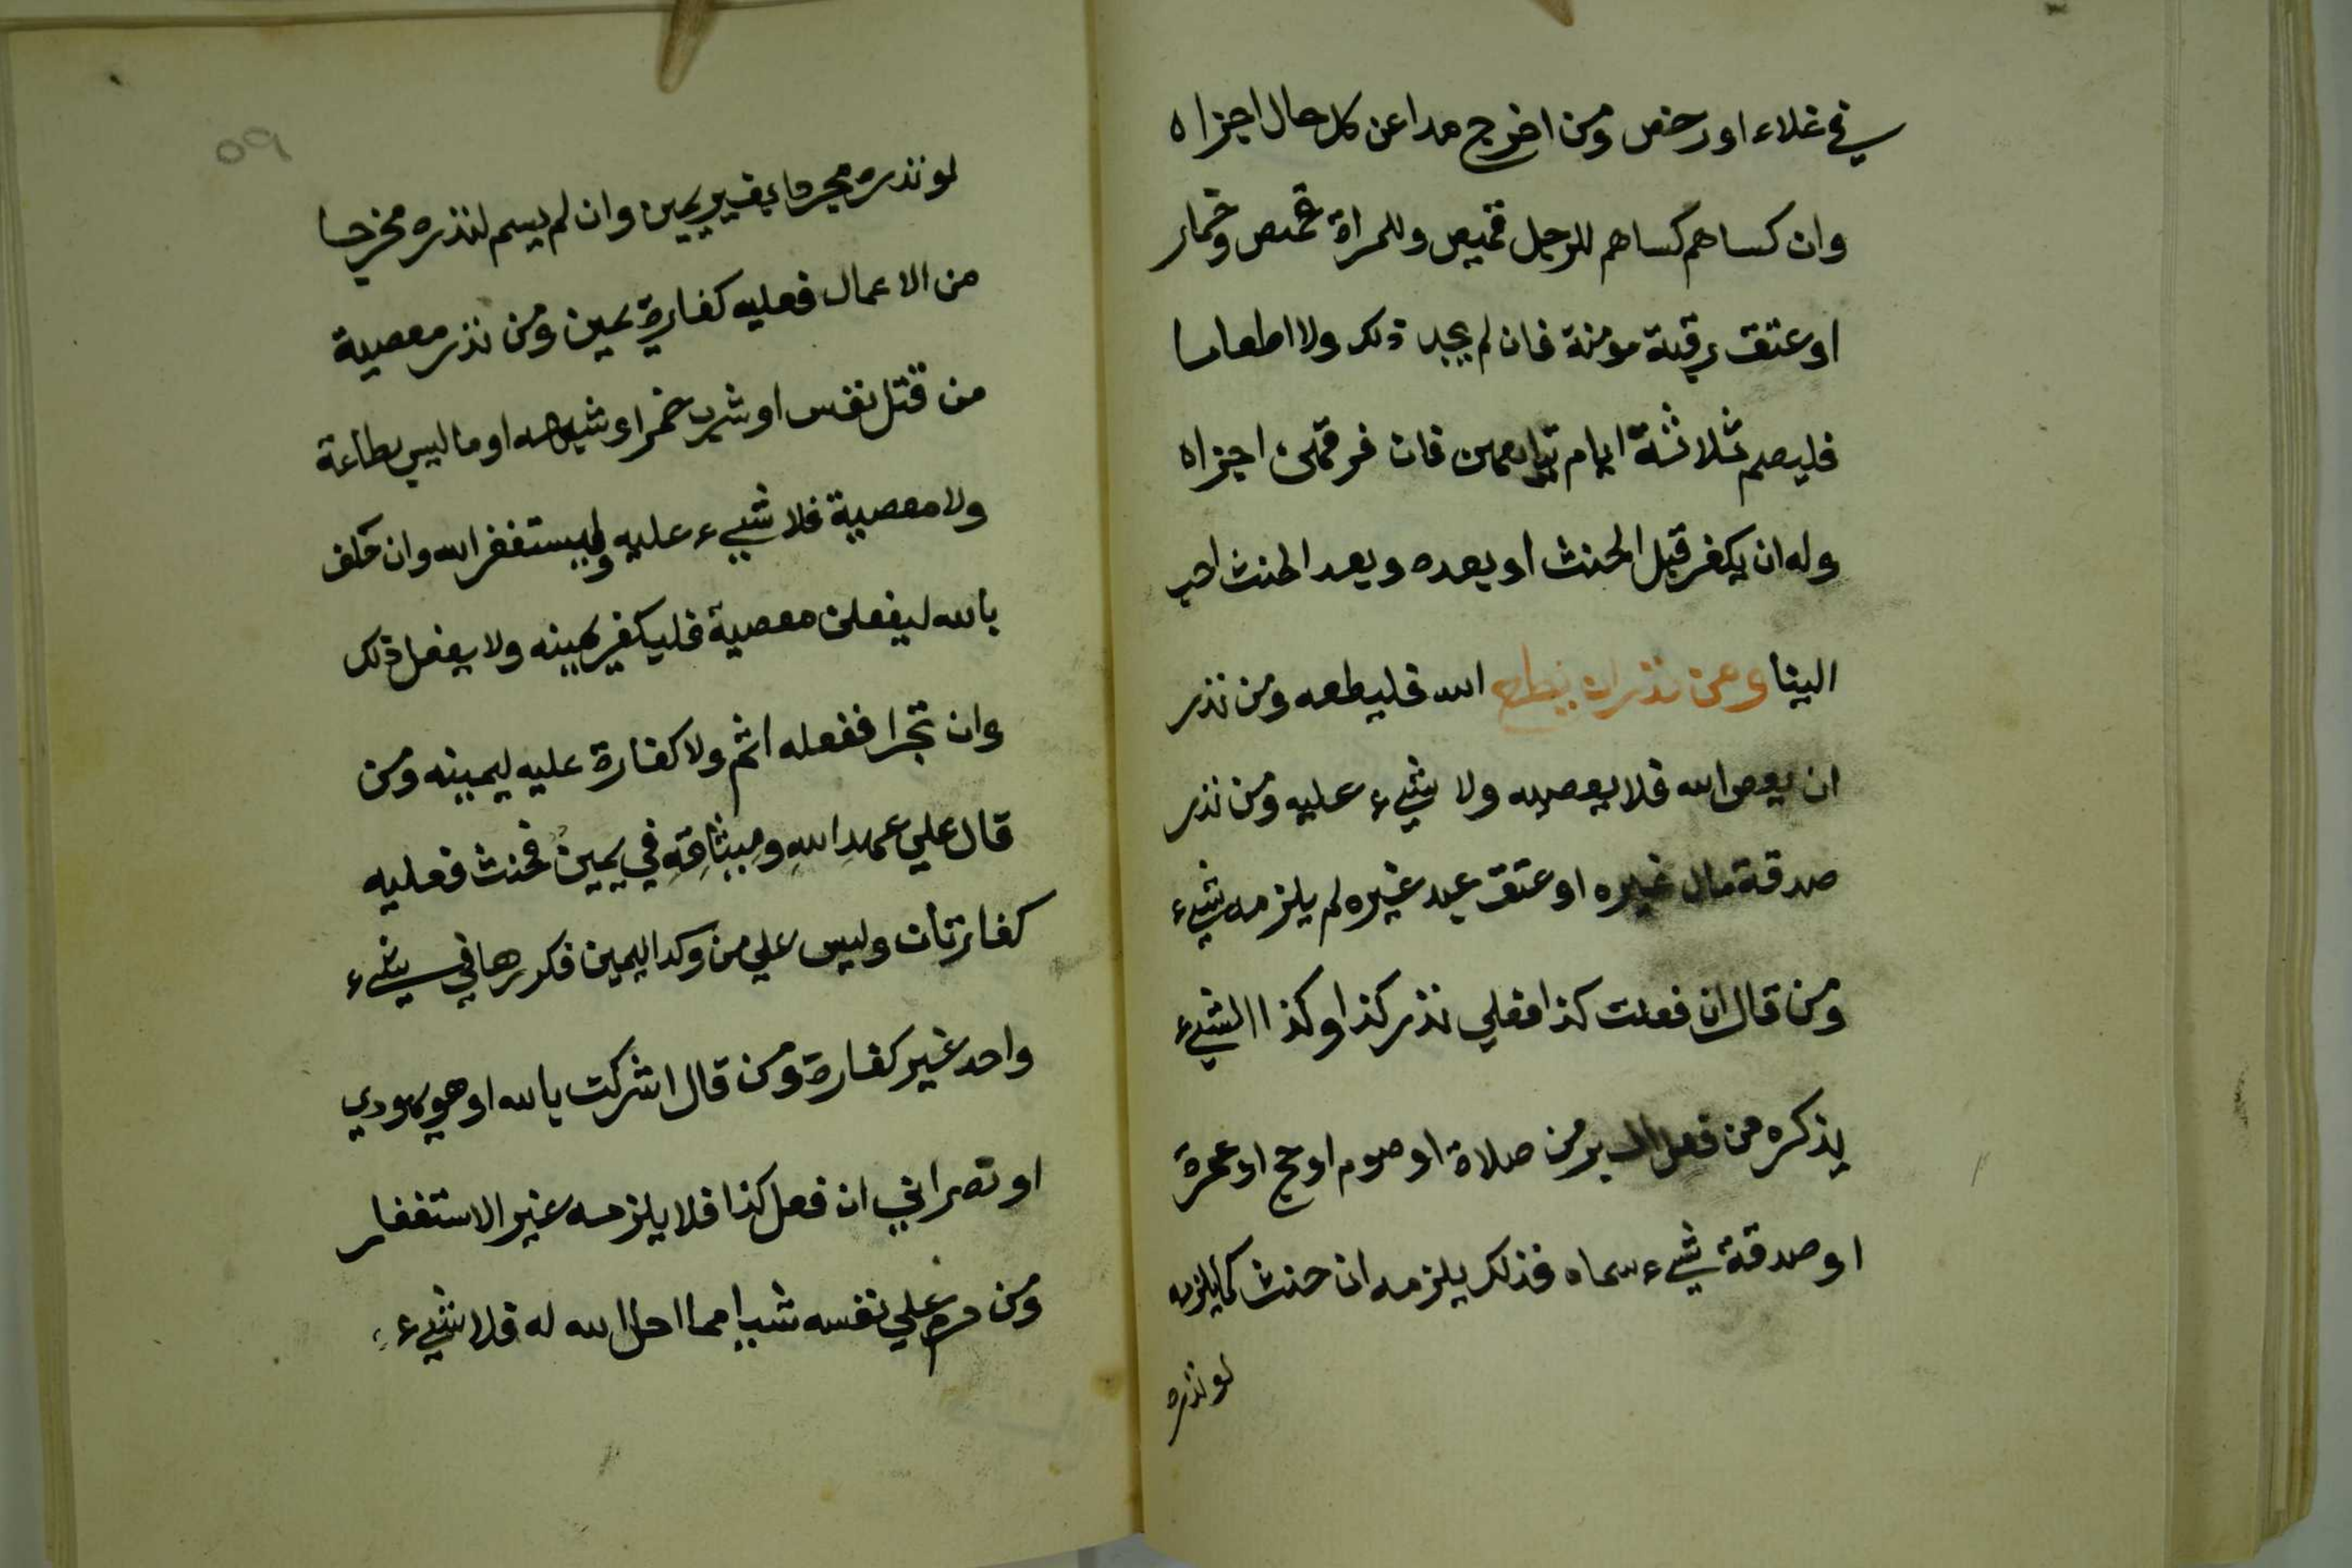 في غلاء او رخص ومن اخرج مدا عن كل حال اجزاه
وان كساهم كساهم للرجل قميص وللمراة قميص وخمار
او عتق رقبة مومنة فان لم يجد ذلك ولا اطعاما
فليصم ثلاثة ايام يتابعهن فان فرقهن اجزاه
وله ان يكفر قبل الحنث او بعده وبعد الحنث احب
الينا ومن نذر ان يطع الله فليطعه ومن نذر
ان يعص الله فلا يعصيه ولا شيء عليه ومن نذر
صدقة مال غيره او عتق عبد غيره لم يلزمه شيء
ومن قال ان فعلت كذا فعلي نذر كذا وكذا الشيء
يذكره من فعل البر من صلاة او صوم او حج او عمرة
او صدقة شيء سماه فذلك يلزمه ان حنث كما يلزمه
لو نذره
٥٩
لو نذره مجردا بغير يمين وان لم يسم لنذره مخرجا
من الاعمال فعليه كفارة يمين ومن نذر معصية
من قتل نفس او شرب خمر او شبهه او ما ليس بطاعة
ولا معصية فلا شيء عليه وليستغفر الله وان حلف
بالله ليفعلن معصية فليكفر يمينه ولا يفعل ذلك
وان تجرا ففعله اثم ولا كفارة عليه ليمينه ومن
قال علي عهد الله وميثاقه في يمين فحنث فعليه
كفارتان وليس علي من وكد اليمين فكررها في شيء
واحد غير كفارة ومن قال اشركت بالله او هو يهودي
او نصراني ان فعل كذا فلا يلزمه غير الاستغفار
ومن حرم علي نفسه شيا مما احل الله له فلا شيء